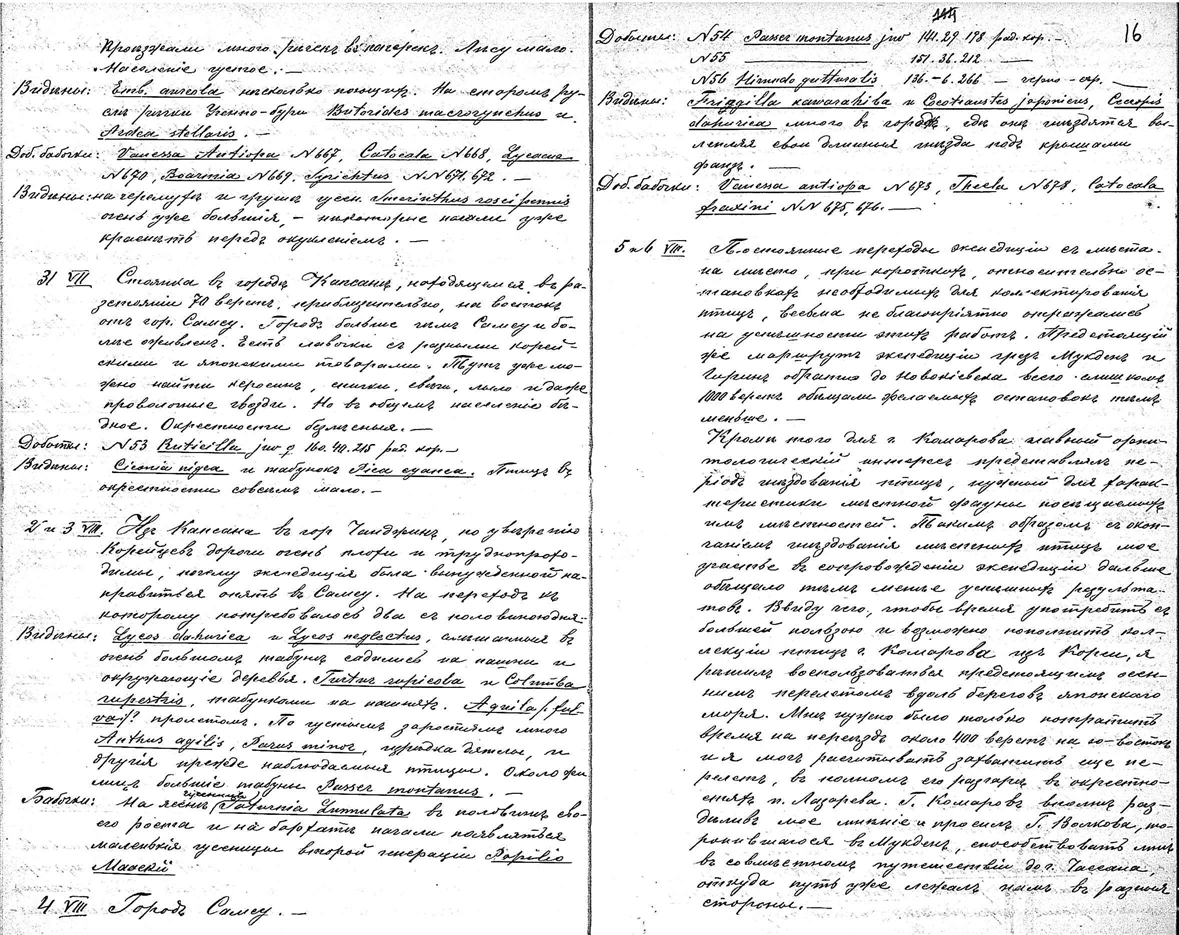 Проѣзжали много рѣчекъ въ поперекъ. Лѣсу мало.
Населеніе густое. —
Видѣны: Emb. aureola нѣсколько поющихъ. На старомъ ру-
слѣ рѣчки Butorides macrorynchus и
Ardea stellaris. —
Доб. бабочки: Vanessa Antiopa N 667, Catocala N 668, Lycaena
N 670, Boarmia N 669. Syrichtus NN 671. 672. —
Видѣны: на черемухѣ и грушѣ гусен. Smerinthus roscipennis
очень уже большія, — нѣкоторые начали уже
краснѣть передъ окукленіемъ. —
31 VII Стоянка въ городѣ Капсанъ, находящемся, въ ра-
зстояніи 70 верстъ, приблизительно, на востокъ
отъ гор. Самсу. Городъ больше чѣмъ Самсу и бо-
лѣе оживленъ. Есть лавочки съ разными корей-
скими и японскими товарами. Тутъ уже мо-
жно найти керосинъ, спички, свѣчи, мыло и даже
проволочные гвозди. Но въ общемъ населеніе бѣ-
дное. Окрестности безлѣсныя. —
Добыты: N 53 Ruticilla juv ♀ 160. 40. 215 рад. кор. —
Видѣны: Ciconia nigra и табунокъ Pica cyanea. Птицъ въ
окрестности совсѣмъ мало. —
2 и 3 VIII. Изъ Капсана въ гор. Чанджинъ, по увѣренію
Корейцевъ дороги очень плохи и труднопрохо-
димы, почему экспедиція была вынужденной на-
правиться опять въ Самсу. На переходъ къ
которому потребовалось два съ половиною дня.
Видѣны: Lycos dahurica и Lycos neglectus, смѣшанные въ
очень большомъ табунѣ садились на пашни и
окружающіе деревья. Turtur rupicola и Columba
rupestris, табунками на пашняхъ. Aquila (ful-
va)? пролетомъ. По густымъ заростямъ много
Anthus agilis, Parus minor, изрѣдка дятлы, и
другія прежде наблюдаемыя птицы. Около фи-
лицъ большіе табуны Passer montanus. —
Бабочки: На ясенѣ гусеницы Saturnia Lunulata въ половину сво-
его роста и на бархатѣ начали появляться
маленькія гусеницы второй генераціи Papilio
Maackii
4 VIII Городъ Самсу. —
16
Добыты: N 54 Passer montanus juv 141. 29. 178 рад. кор. —
N 55 —— 151. 36. 212 ——
N 56 Hirundo gutturalis 136. — 6. 266 — черно-сѣр. —
Видѣны: Fringilla kawarahiba и Ceotraustes japonicus, Cecropis
dahurica много въ городѣ, гдѣ онѣ гнѣздятся вы-
лепляя свои длинныя гнѣзда подъ крышами
фанзъ. —
Доб. бабочки: Vanessa antiopa N 673, Thecla N 678, Catocala
fraxini NN 675, 676. —
5 и 6 VIII. Постоянные переходы экспедиціи съ мѣста
на мѣсто, при короткихъ, относительно ос-
тановкахъ необходимыхъ для коллектированія
птицъ, весьма не благопріятно отражались
на успѣшности этихъ работъ. Предстоящій
же маршрутъ экспедиціи чрезъ Мукденъ и
Гиринъ обратно до Новокіевска всего слишкомъ
1000 верстъ обѣщали желаемыхъ остановокъ тѣмъ
меньше. —
Кромѣ того для г. Комарова главный орни-
тологическій интересъ представлялъ пе-
ріодъ гнѣздованія птицъ, нужный для харак-
теристики мѣстной фауны посѣщаемыхъ
имъ мѣстностей. Такимъ образомъ съ окон-
чаніемъ гнѣздованія мѣстныхъ птицъ мое
участье въ сопровожденіи экспедиціи дальше
обѣщало тѣмъ менѣе успѣшныхъ результа-
товъ. Ввиду чего, чтобы время употребить съ
большей пользою и возможно пополнить кол-
лекціи птицъ г. Комарова изъ Кореи, я
рѣшилъ воспользоваться предстоящимъ осен-
нимъ перелетомъ вдоль береговъ японскаго
моря. Мнѣ нужно было только потратить
время на переѣздъ около 400 верстъ на ю-востокъ
и я могъ расчитывать захватить еще пе-
релетъ, въ полномъ его разгарѣ въ окрестно-
стяхъ п. Лазарева. Г. Комаровъ вполнѣ раз-
дѣливъ мое мнѣніе и просилъ Г. Волкова, то-
ропившагося въ Мукденъ, способствовать мнѣ
въ совмѣстномъ путешествіи до г. Чассана,
откуда путь уже лежалъ намъ въ разныя
стороны. —